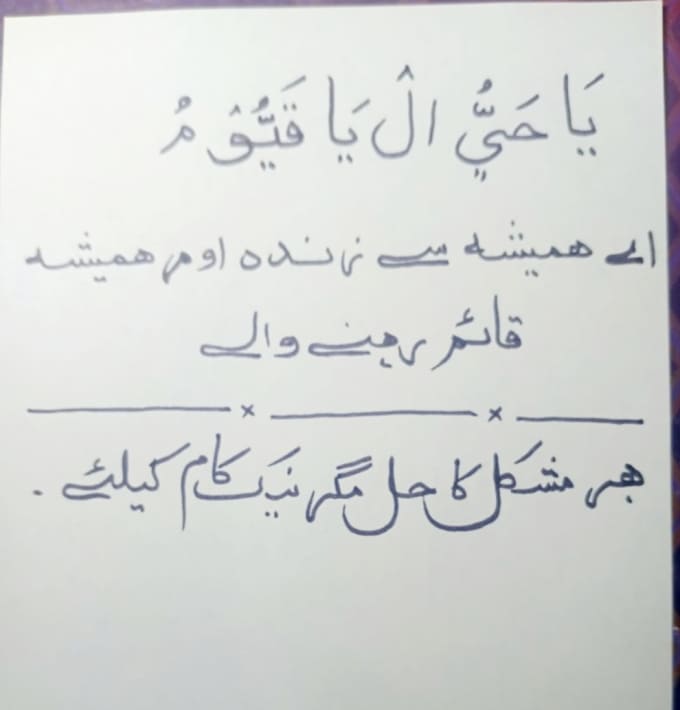 يَا حَيُّ الْ يَا قَيُّوْمُ
اے ہمیشہ سے زندہ اور ہمیشہ
قائم رہنے والے
ہر مشکل کا حل مگر نیک کام کیلئے ۔